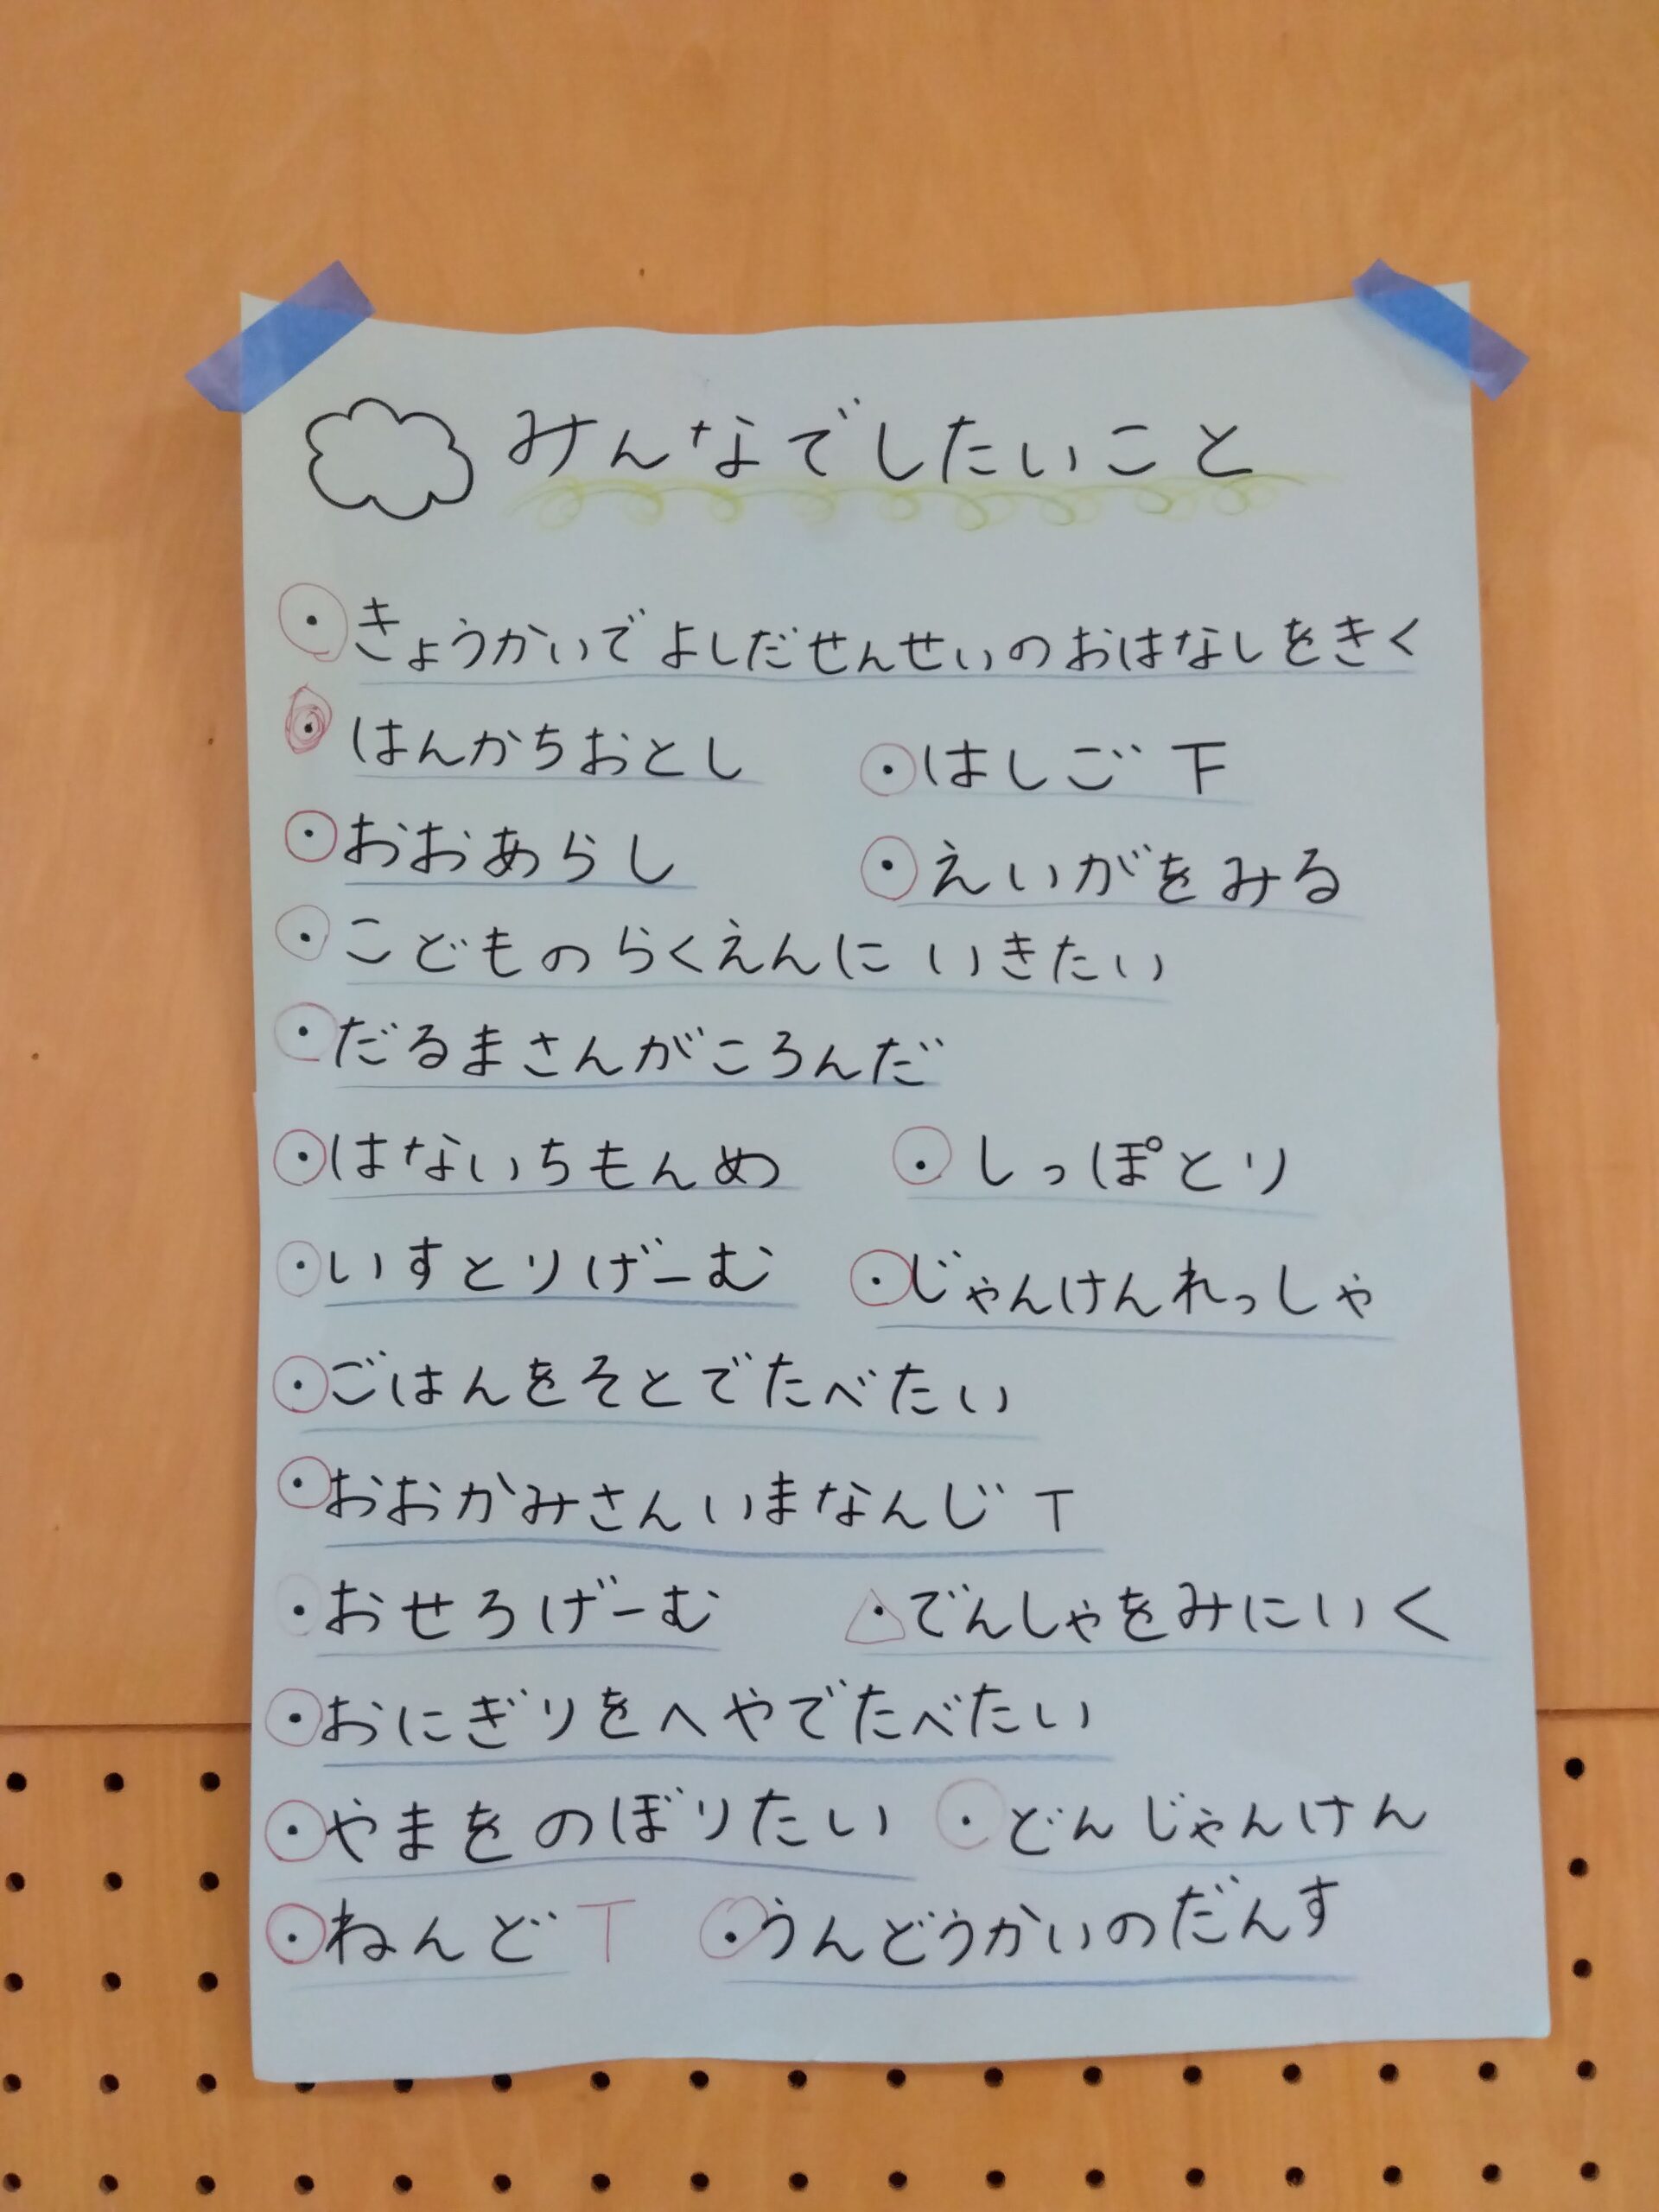 みんなでしたいこと
・きょうかいでよしだせんせいのおはなしをきく
・はんかちおとし ・はしご下
・おおあらし ・えいがをみる
・こどものらくえんに いきたい
・だるまさんがころんだ
・はないちもんめ ・しっぽとり
・いすとりげーむ ・じゃんけんれっしゃ
・ごはんをそとでたべたい
・おおかみさんいまなんじ T
・おせろげーむ ・でんしゃをみにいく
・おにぎりをへやでたべたい
・やまをのぼりたい ・どんじゃんけん
・ねんど T ・うんどうかいのだんす